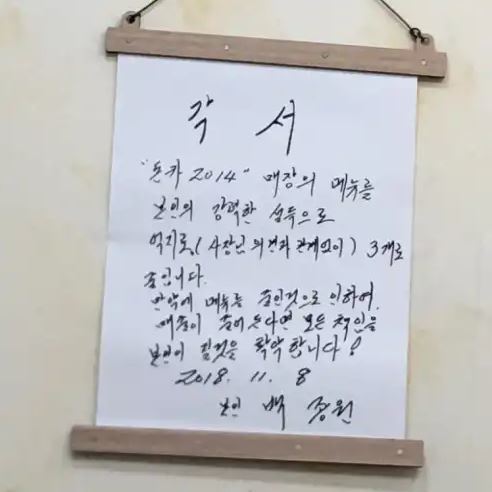 각 서
"돈카 2014" 매장의 메뉴를
본인의 강력한 설득으로
억지로 (사장님 의견과 관계없이) 3개로
줄입니다.
만약에 메뉴를 줄인것으로 인하여,
매출이 줄어 든다면 모든 책임을
본인이 질것을 확약합니다!
2018. 11. 8
본인 백종원